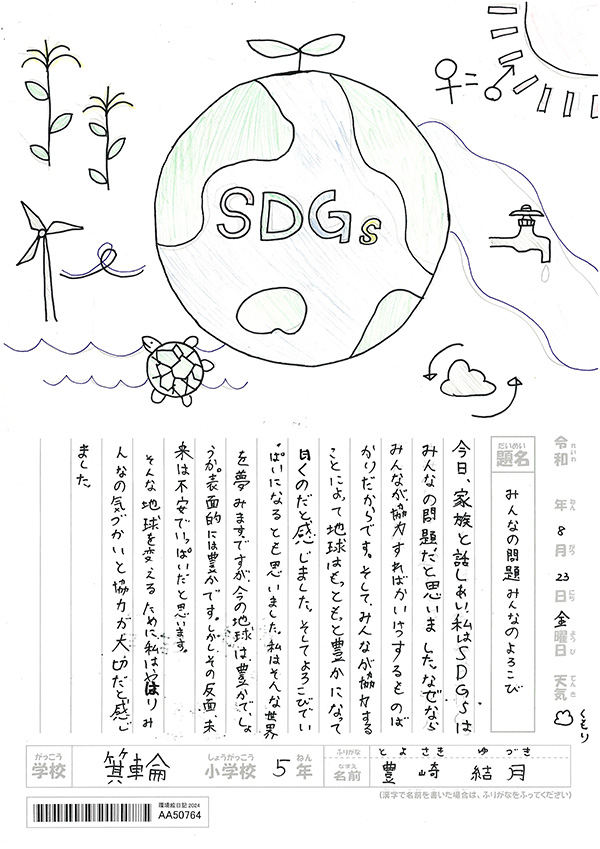 SDGs
♀=♂
令和 れいわ 年 ねん 8月 がつ 23日 にち 金曜日 ようび 天気 てんき くもり
だいめい
題名
みんなの問題 みんなのよろこび
今日、家族と話しあい、私はSDGsは
みんなの問題だと思いました。なぜなら
みんなが、協力すればかいけつするものば
かりだからです。そして、みんなが協力する
ことによって地球はもっともっと豊かになって
いくのだと感じました。そしてよろこびでい
っぱいになるとも思いました。私はそんな世界
を夢みますですが、今の地球は豊かでしょ
うか。表面的には豊かです。しかしその反面、未
来は不安でいっぱいだと思います。
そんな地球を変えるために私はやはりみ
んなの気づかいと協力が大切だと感じ
ました。
がっこう しょうがっこう ねん ふりがな とよさき ゆづき
学校 箕輪 小学校 5年 なまえ 名前 豊崎 結月
(漢字で名前を書いた場合は、ふりがなをふってください)
環境絵日記2024
AA50764